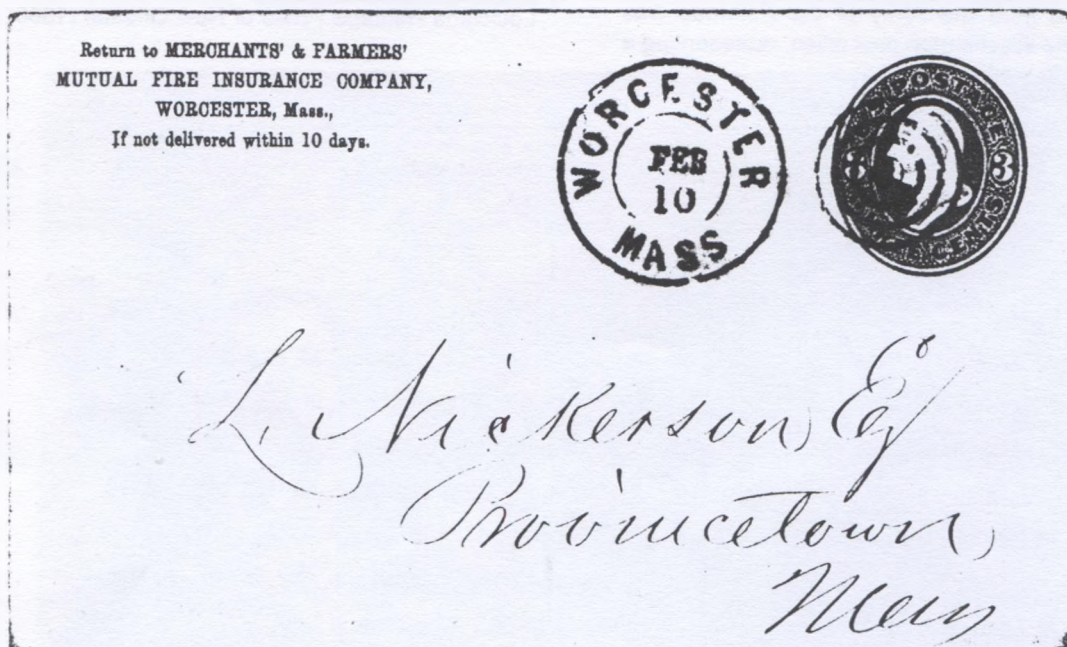 Return to MERCHANTS' & FARMERS'
MUTUAL FIRE INSURANCE COMPANY,
WORCESTER, Mass.,
If not delivered within 10 days.
WORCESTER
FEB
10
MASS
POSTAGE
3 3
CENTS
L. Nickerson, Esq
Provincetown,
Mass